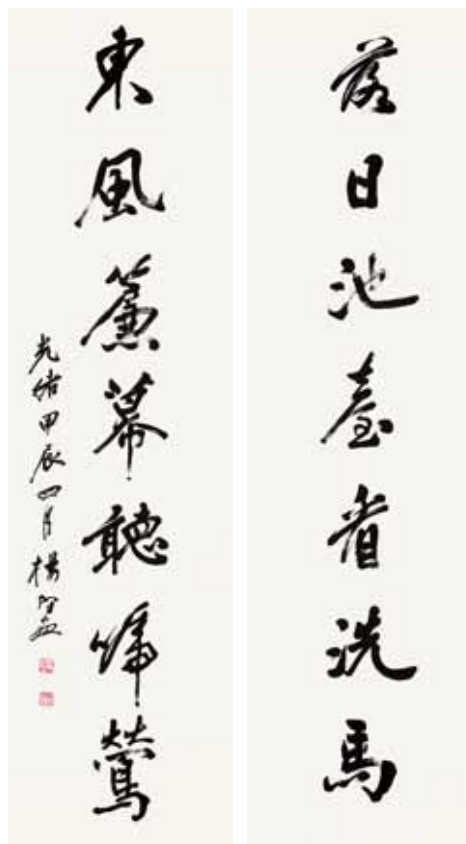 落日池臺看洗馬
東風簾幕聽啼鶯
光緒甲辰四月楊